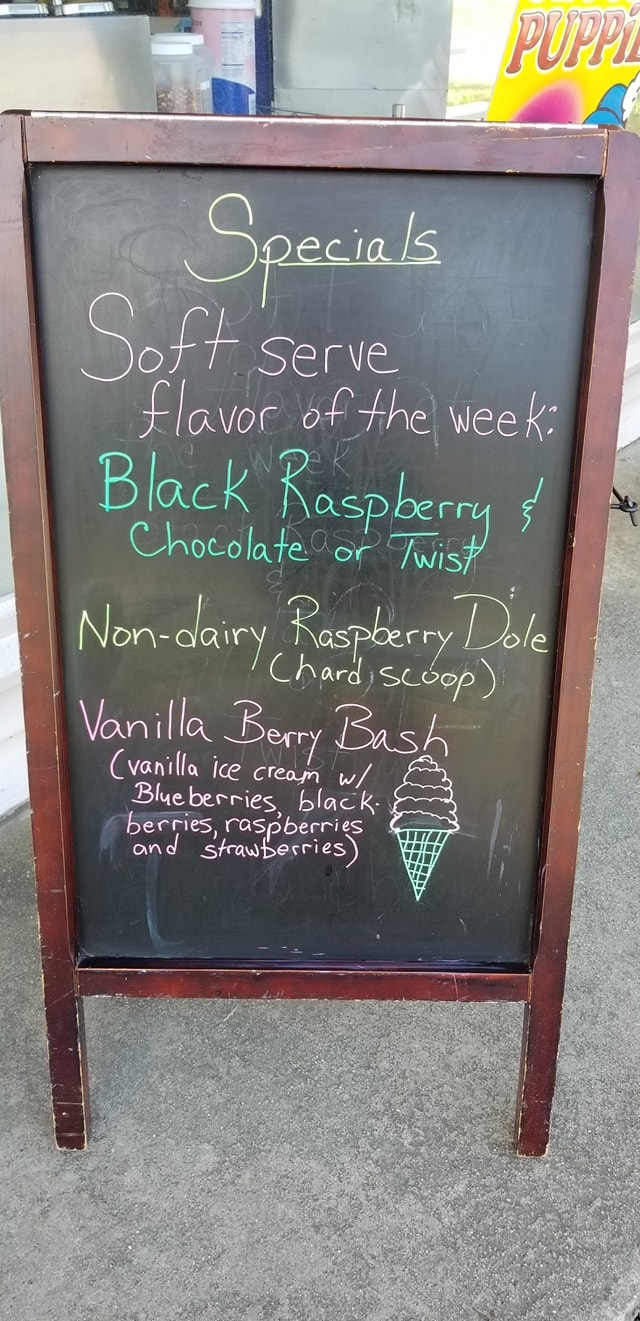 PUPPI
Specials
Soft serve
flavor of the week:
Black Raspberry &
Chocolate or Twist
Non-dairy Raspberry Dole
(hard scoop)
Vanilla Berry Bash
(vanilla ice cream w/
Blueberries, black-
berries, raspberries
and strawberries)